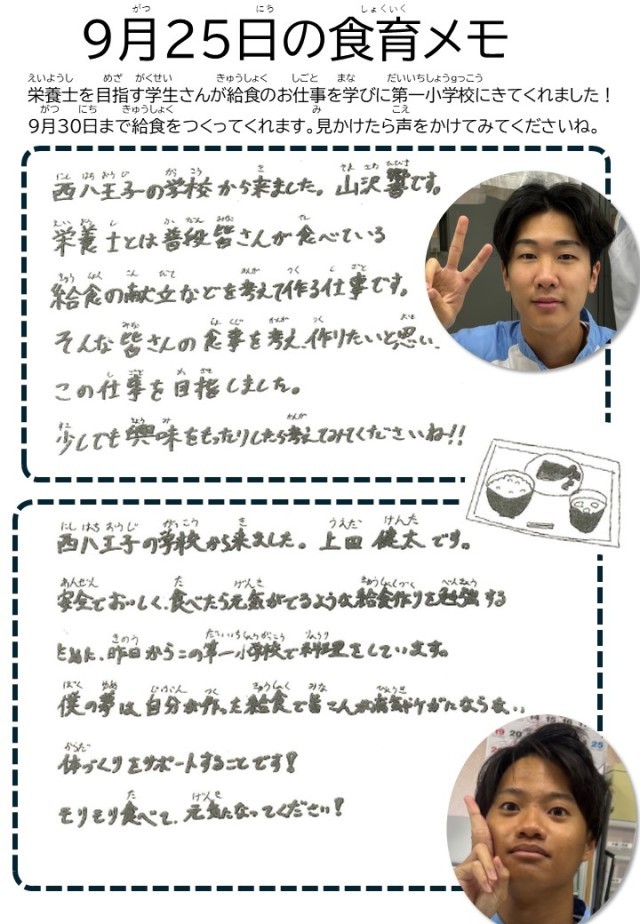 9月25日の食育メモ
栄養士を目指す学生さんが給食のお仕事を学びに第一小学校にきてくれました！
9月30日まで給食をつくってくれます。見かけたら声をかけてみてくださいね。
西八王子の学校から来ました。山沢 響です。
栄養士とは普段皆さんが食べている
給食の献立などを考えて作る仕事です。
そんな皆さんの食事を考え、作りたいと思い、
この仕事を目指しました。
少しでも興味をもったりしたら考えてみてくださいね!!
西八王子の学校から来ました。上田 健太です。
安全でおいしく、食べたら元気がでるような給食作りを勉強する
ために、昨日からこの第一小学校で料理をしています。
僕の夢は自分が作った給食で皆さんが病気やケガにならない、
体づくりをサポートすることです！
モリモリ食べて、元気になってください！